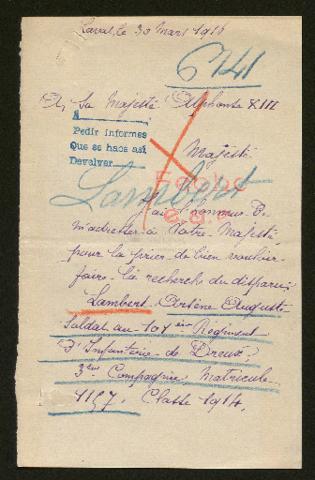 Laval, le 30 Mars 1916
6741
A, Sa Majesté Alphonse XIII
A
Pedir informes
Que se haga así
Devolver
Majesté
Lambert
Fecho
J'ai l'honneur de
m'adresser à Votre Majesté,
pour la prier de bien vouloir
faire la recherche du disparu
Lambert Arsène Auguste
Soldat au 107 ème Régiment
d'Infanterie de Dreux,
3 ème Compagnie Matricule
4157. Classe 1914.